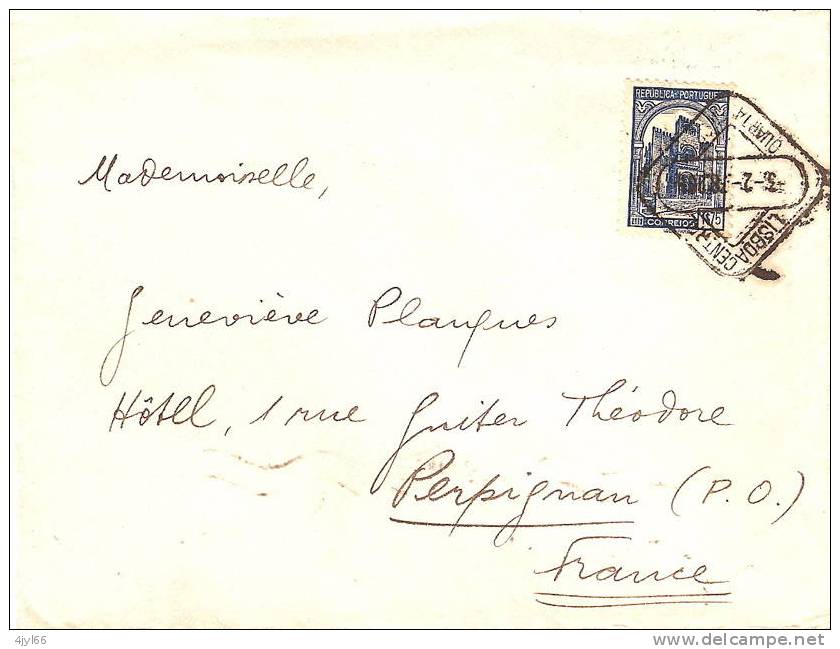 REPÚBLICA PORTUGUE
QUARTA
-2-
CORREIOS
LISBOA CENTR
Mademoiselle,
Geneviève Planques
Hôtel, 1 rue Guiter Théodore
Perpignan (P.O.)
France
4jyl66
www.delcampe.net